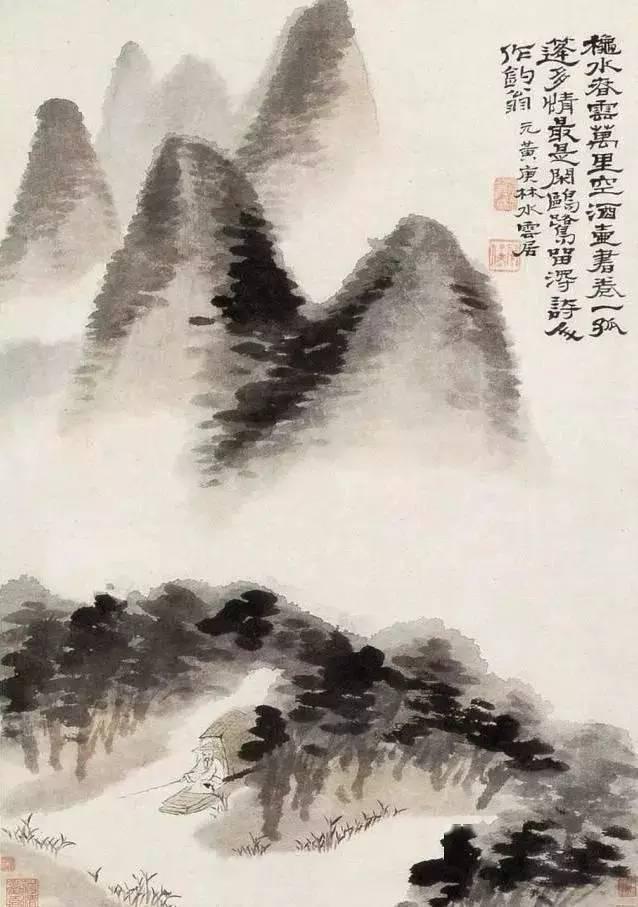 穐水春雲萬里空酒壺書卷一孤
蓬多情最是閑鷗鷺留淂詩人
作釣翁 元黃庚林水雲居